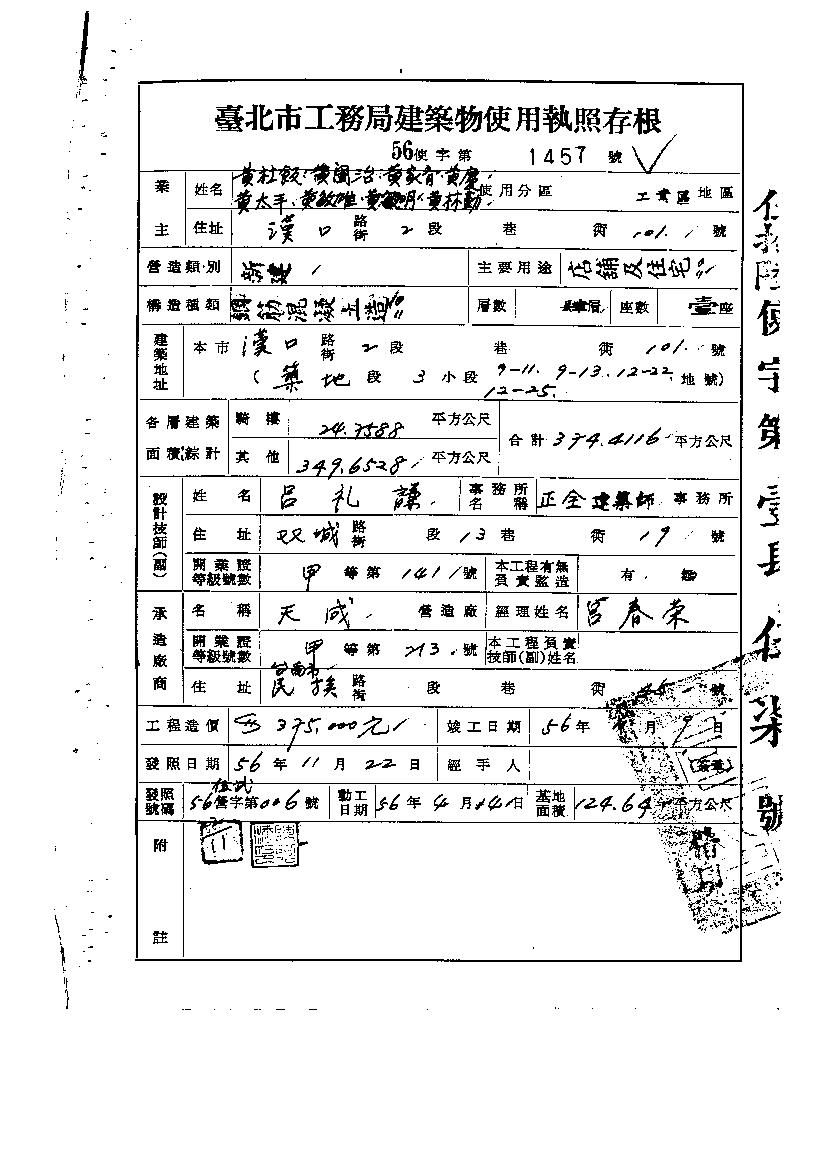 臺北市工務局建築物使用執照存根
56使字第 1457 號
業主 姓名 使用分區 工業區地區
住址 漢口路街 2段 巷 衖 101 號
營造類別 新建 主要用途 店舖及住宅
構造種類 鋼筋混凝土造 層數 座數 壹座
建築地址 本市 漢口路街 2段 巷 衖 101 號
(築地段 3小段 9-11. 9-13. 12-22. 地號)
12-25.
各層建築面積綜計 騎樓 24.7588 平方公尺 合計 374.4116 平方公尺
其他 349.6528 平方公尺
設計技師(副) 姓名 呂礼謙 事務所名稱 正全建築師事務所
住址 双城路街 段 13巷 衖 19 號
開業證等級號數 甲等第 1411號 本工程有無負責監造 有.
承造廠商 名稱 天成 營造廠 經理姓名 呂春荣
開業證等級號數 甲等第 213號 本工程負責技師(副)姓名
台南市
住址 民族路街 段 巷 衖 號
工程造價 375,000元 竣工日期 56年 月 9日
發照日期 56年11月22日 經手人
發照號碼 56營字第006號 動工日期 56年4月 日 基地面積 124.64平方公尺
11
附註
伍拾陸使字第壹肆伍柒號